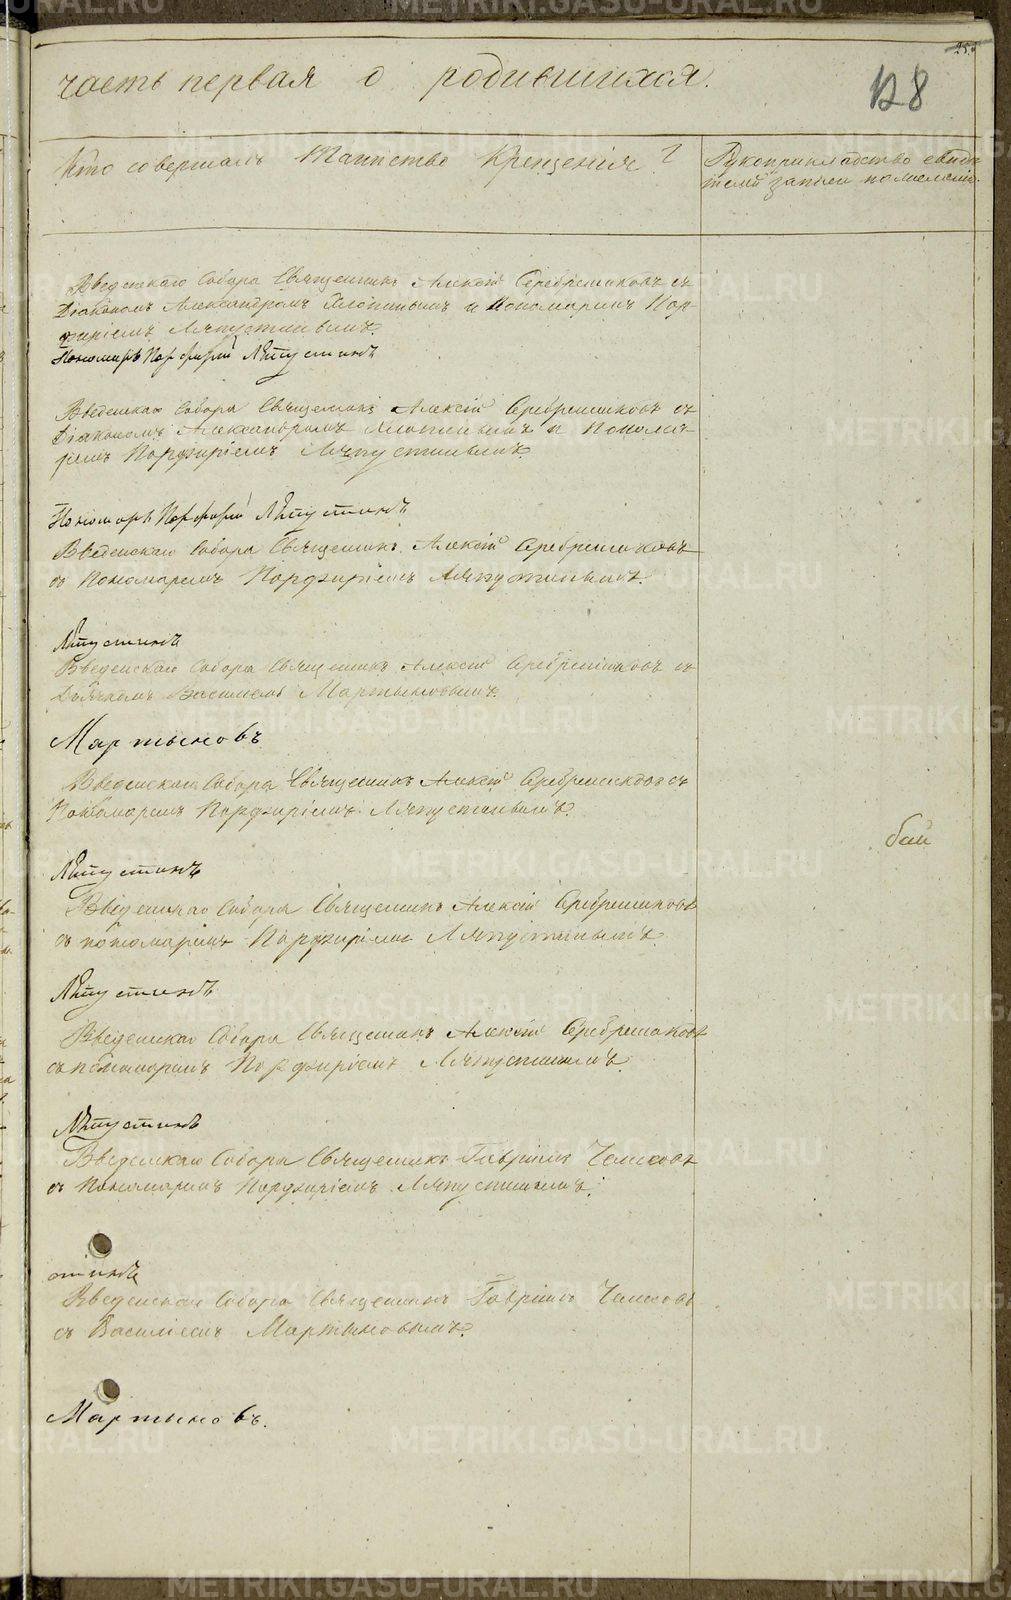 часть первая о родившихся.
128
Кто совершалъ Таинство Крещенія?
Рукоприкладство свидѣ
телей записи по желанію.
Введенскаго Собора Священникъ Алексій Серебренниковъ съ
Діакономъ Александромъ и Пономаремъ Пор-
фиріемъ Ляпустинымъ.
Пономарь Порфирій Ляпустинъ
Введенскаго Собора Священникъ Алексій Серебренниковъ съ
Діакономъ Александромъ и Понома-
ремъ Порфиріемъ Ляпустинымъ.
Пономарь Порфирій Ляпустинъ
Введенскаго Собора Священникъ Алексій Серебренниковъ
съ Пономаремъ Порфиріемъ Ляпустинымъ.
Ляпустинъ
Введенскаго Собора Священникъ Алексій Серебренниковъ съ
Дьячкомъ Василіемъ Мартыновымъ.
Мартыновъ
Введенскаго Собора Священникъ Алексій Серебренниковъ съ
Пономаремъ Порфиріемъ Ляпустинымъ.
бай
Ляпустинъ
Введенскаго Собора Священникъ Алексій Серебренниковъ
съ пономаремъ Порфиріемъ Ляпустинымъ.
Ляпустинъ
Введенскаго Собора Священникъ Алексій Серебренниковъ
съ пономаремъ Порфиріемъ Ляпустинымъ.
Ляпустинъ
Введенскаго Собора Священникъ Гавріилъ
съ Пономаремъ Порфиріемъ Ляпустинымъ.
стинъ
Введенскаго Собора Священникъ Гавріилъ
съ Василіемъ Мартыновымъ.
Мартыновъ.
METRIKI.GASO-URAL.RU